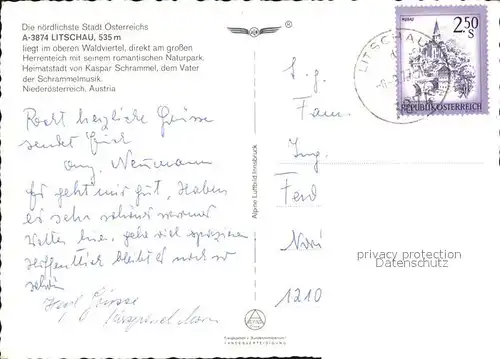 Die nördlichste Stadt Österreichs
A-3874 LITSCHAU, 535 m
liegt im oberen Waldviertel, direkt am großen
Herrenteich mit seinem romantischen Naturpark.
Heimatstadt von Kaspar Schrammel, dem Vater
der Schrammelmusik.
Niederösterreich, Austria
Recht herzliche Grüsse
sendet Euch
Neumann
Es geht mir gut, Haben
es sehr schönes warmes
Wetter hier, gehe viel spazieren
Hoffentlich bleibt es noch so
schön
Grüsse
Alpine Luftbild Innsbruck
LITSCHAU
2.50
S
MURAU
REPUBLIK ÖSTERREICH
Fam.
Ing.
Ferd
1210
privacy protection
Datenschutz
LANDESVERTEIDIGUNG